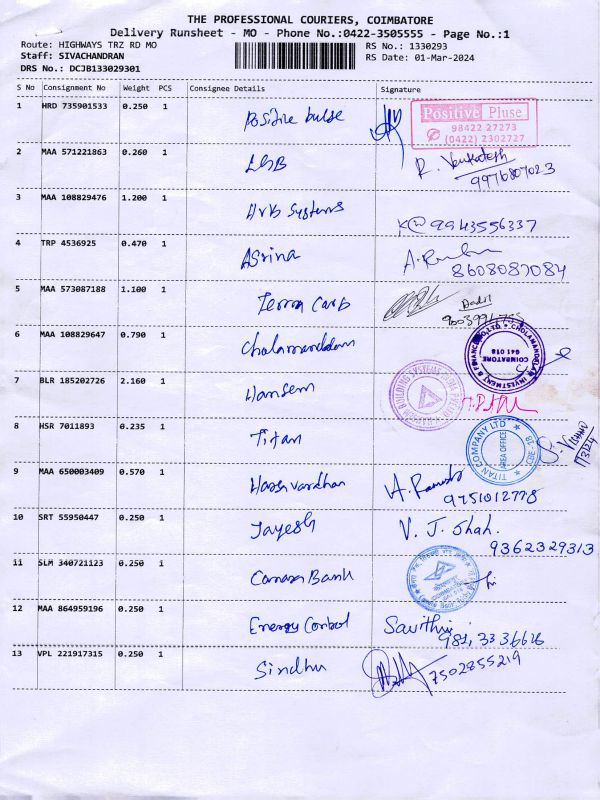 THE PROFESSIONAL COURIERS, COIMBATORE
Delivery Runsheet - MO - Phone No.:0422-3505555 - Page No.:1
Route: HIGHWAYS TRZ RD MO RS No.: 1330293
Staff: SIVACHANDRAN RS Date: 01-Mar-2024
DRS No.: DCJB133029301
S No Consignment No Weight PCS Consignee Details Signature
1 HRD 735901533 0.250 1 Positive Pulse Positive Pluse
98422 27273
(0422) 2302727
2 MAA 571221863 0.260 1 LGB R. Venkatesh
9976807023
3 MAA 108829476 1.200 1 Systems 9943556337
4 TRP 4536925 0.470 1 Asrina A.
8608087084
5 MAA 573087188 1.100 1 Terra Carb
6 MAA 108829647 0.790 1 Cholamandalam CHOLAMANDALAM INVESTMENT & FINANCE CO. LTD COIMBATORE 641 018
7 BLR 185202726 2.160 1 Hansem BUILDING SYSTEMS
8 HSR 7011893 0.235 1 Titan TITAN COMPANY LTD AREA OFFICE CBE 18
9 MAA 650003409 0.570 1 Harsavardhan A. Ramesh
9751012778
10 SRT 55950447 0.250 1 Jayesh V. J. Shah.
9362329313
11 SLM 340721123 0.250 1 Canara Bank
12 MAA 864959196 0.250 1 Energy Control Savithri
13 VPL 221917315 0.250 1 Sindhu 7502855219